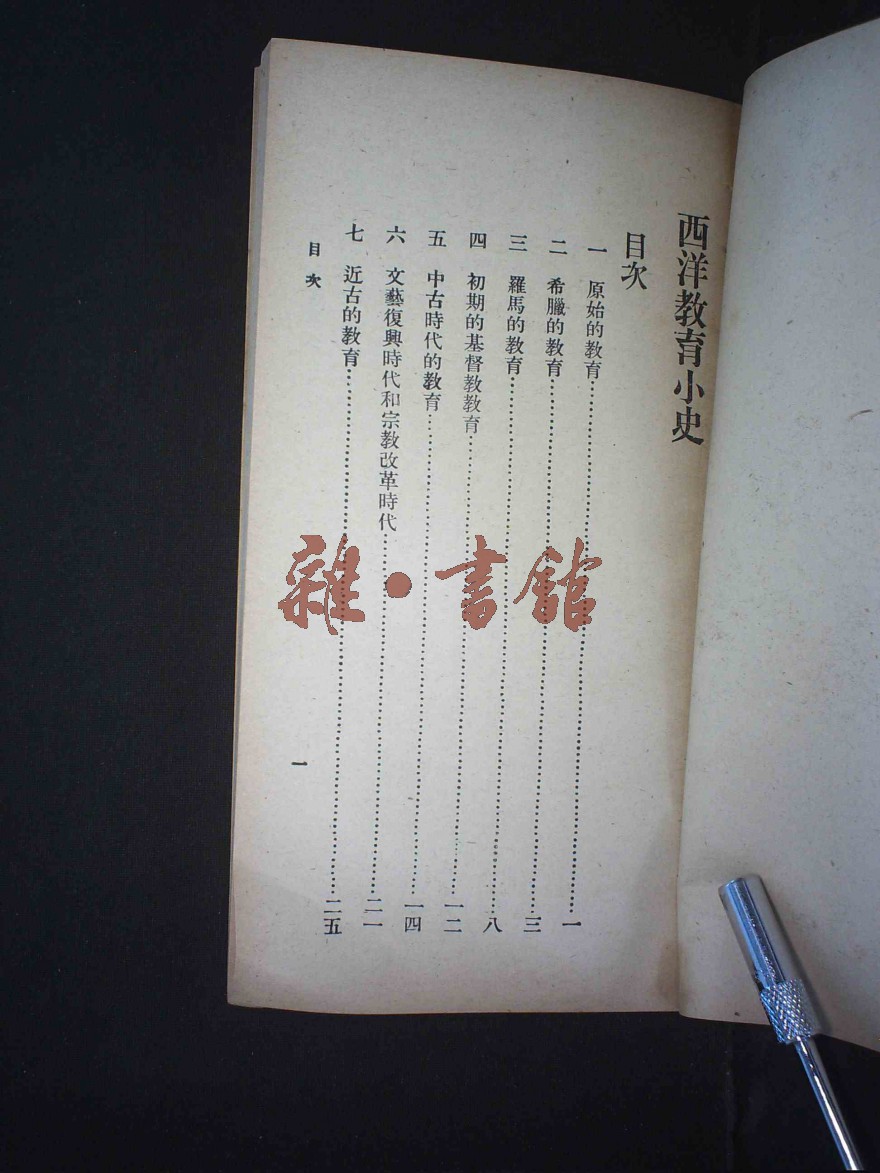 西洋教育小史
目次
一 原始的教育……………一
二 希臘的教育……………三
三 羅馬的教育……………八
四 初期的基督教教育……………一二
五 中古時代的教育……………一四
六 文藝復興時代和宗教改革時代……………二一
七 近古的教育……………二五
目次
一
雜·書館